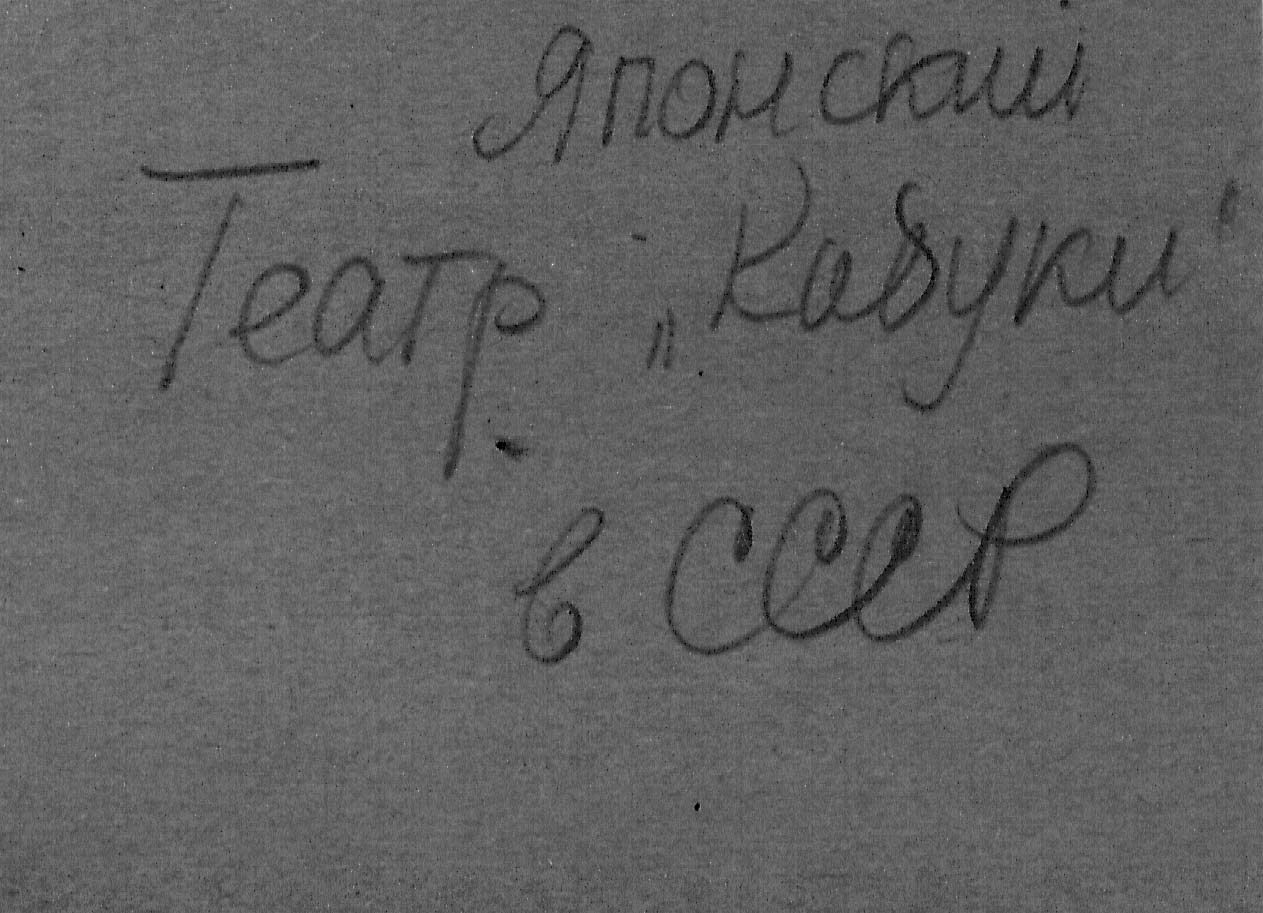 Японский
Театр „Кабуки"
в СССР